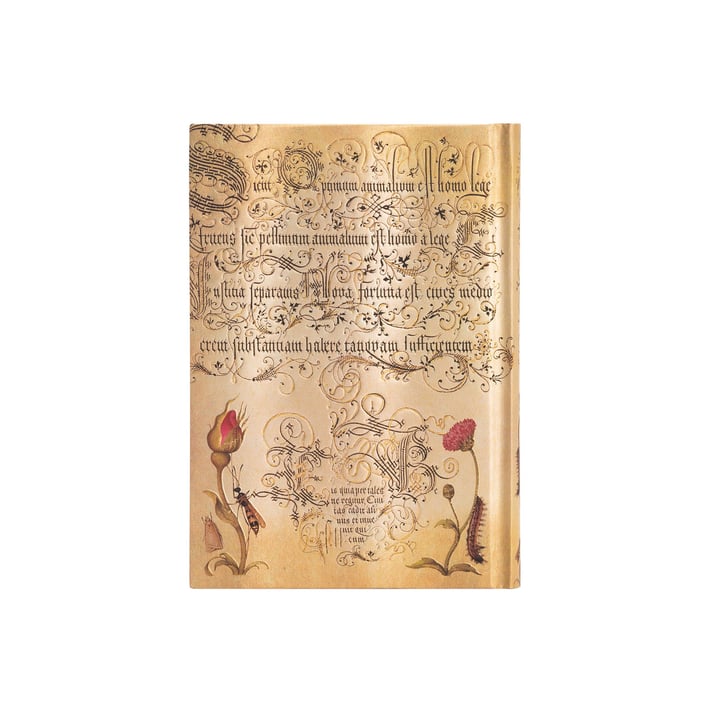 Sicut Optimum animalium est homo lege
fruens sic pessimum animalium est homo a lege E
Iustitia separatus Nova fortuna est cives medio
crem substantiam habere tanquam sufficientem
is quia per tales
ne regitur Civi
tas cadit ali
nus et inve
nit qui
cum